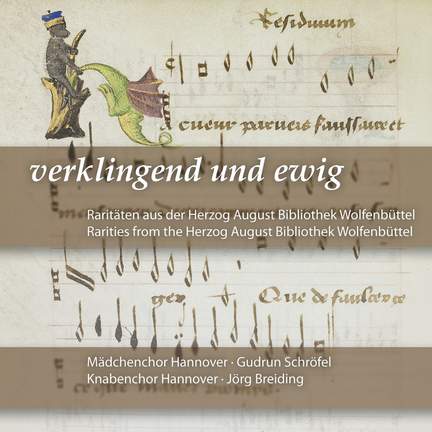 Residuum
cueur parvers faulsaire et
verklingend und ewig
Raritäten aus der Herzog August Bibliothek Wolfenbüttel
Rarities from the Herzog August Bibliothek Wolfenbüttel
ger Que de faulcerce
Mädchenchor Hannover · Gudrun Schröfel
Knabenchor Hannover · Jörg Breiding